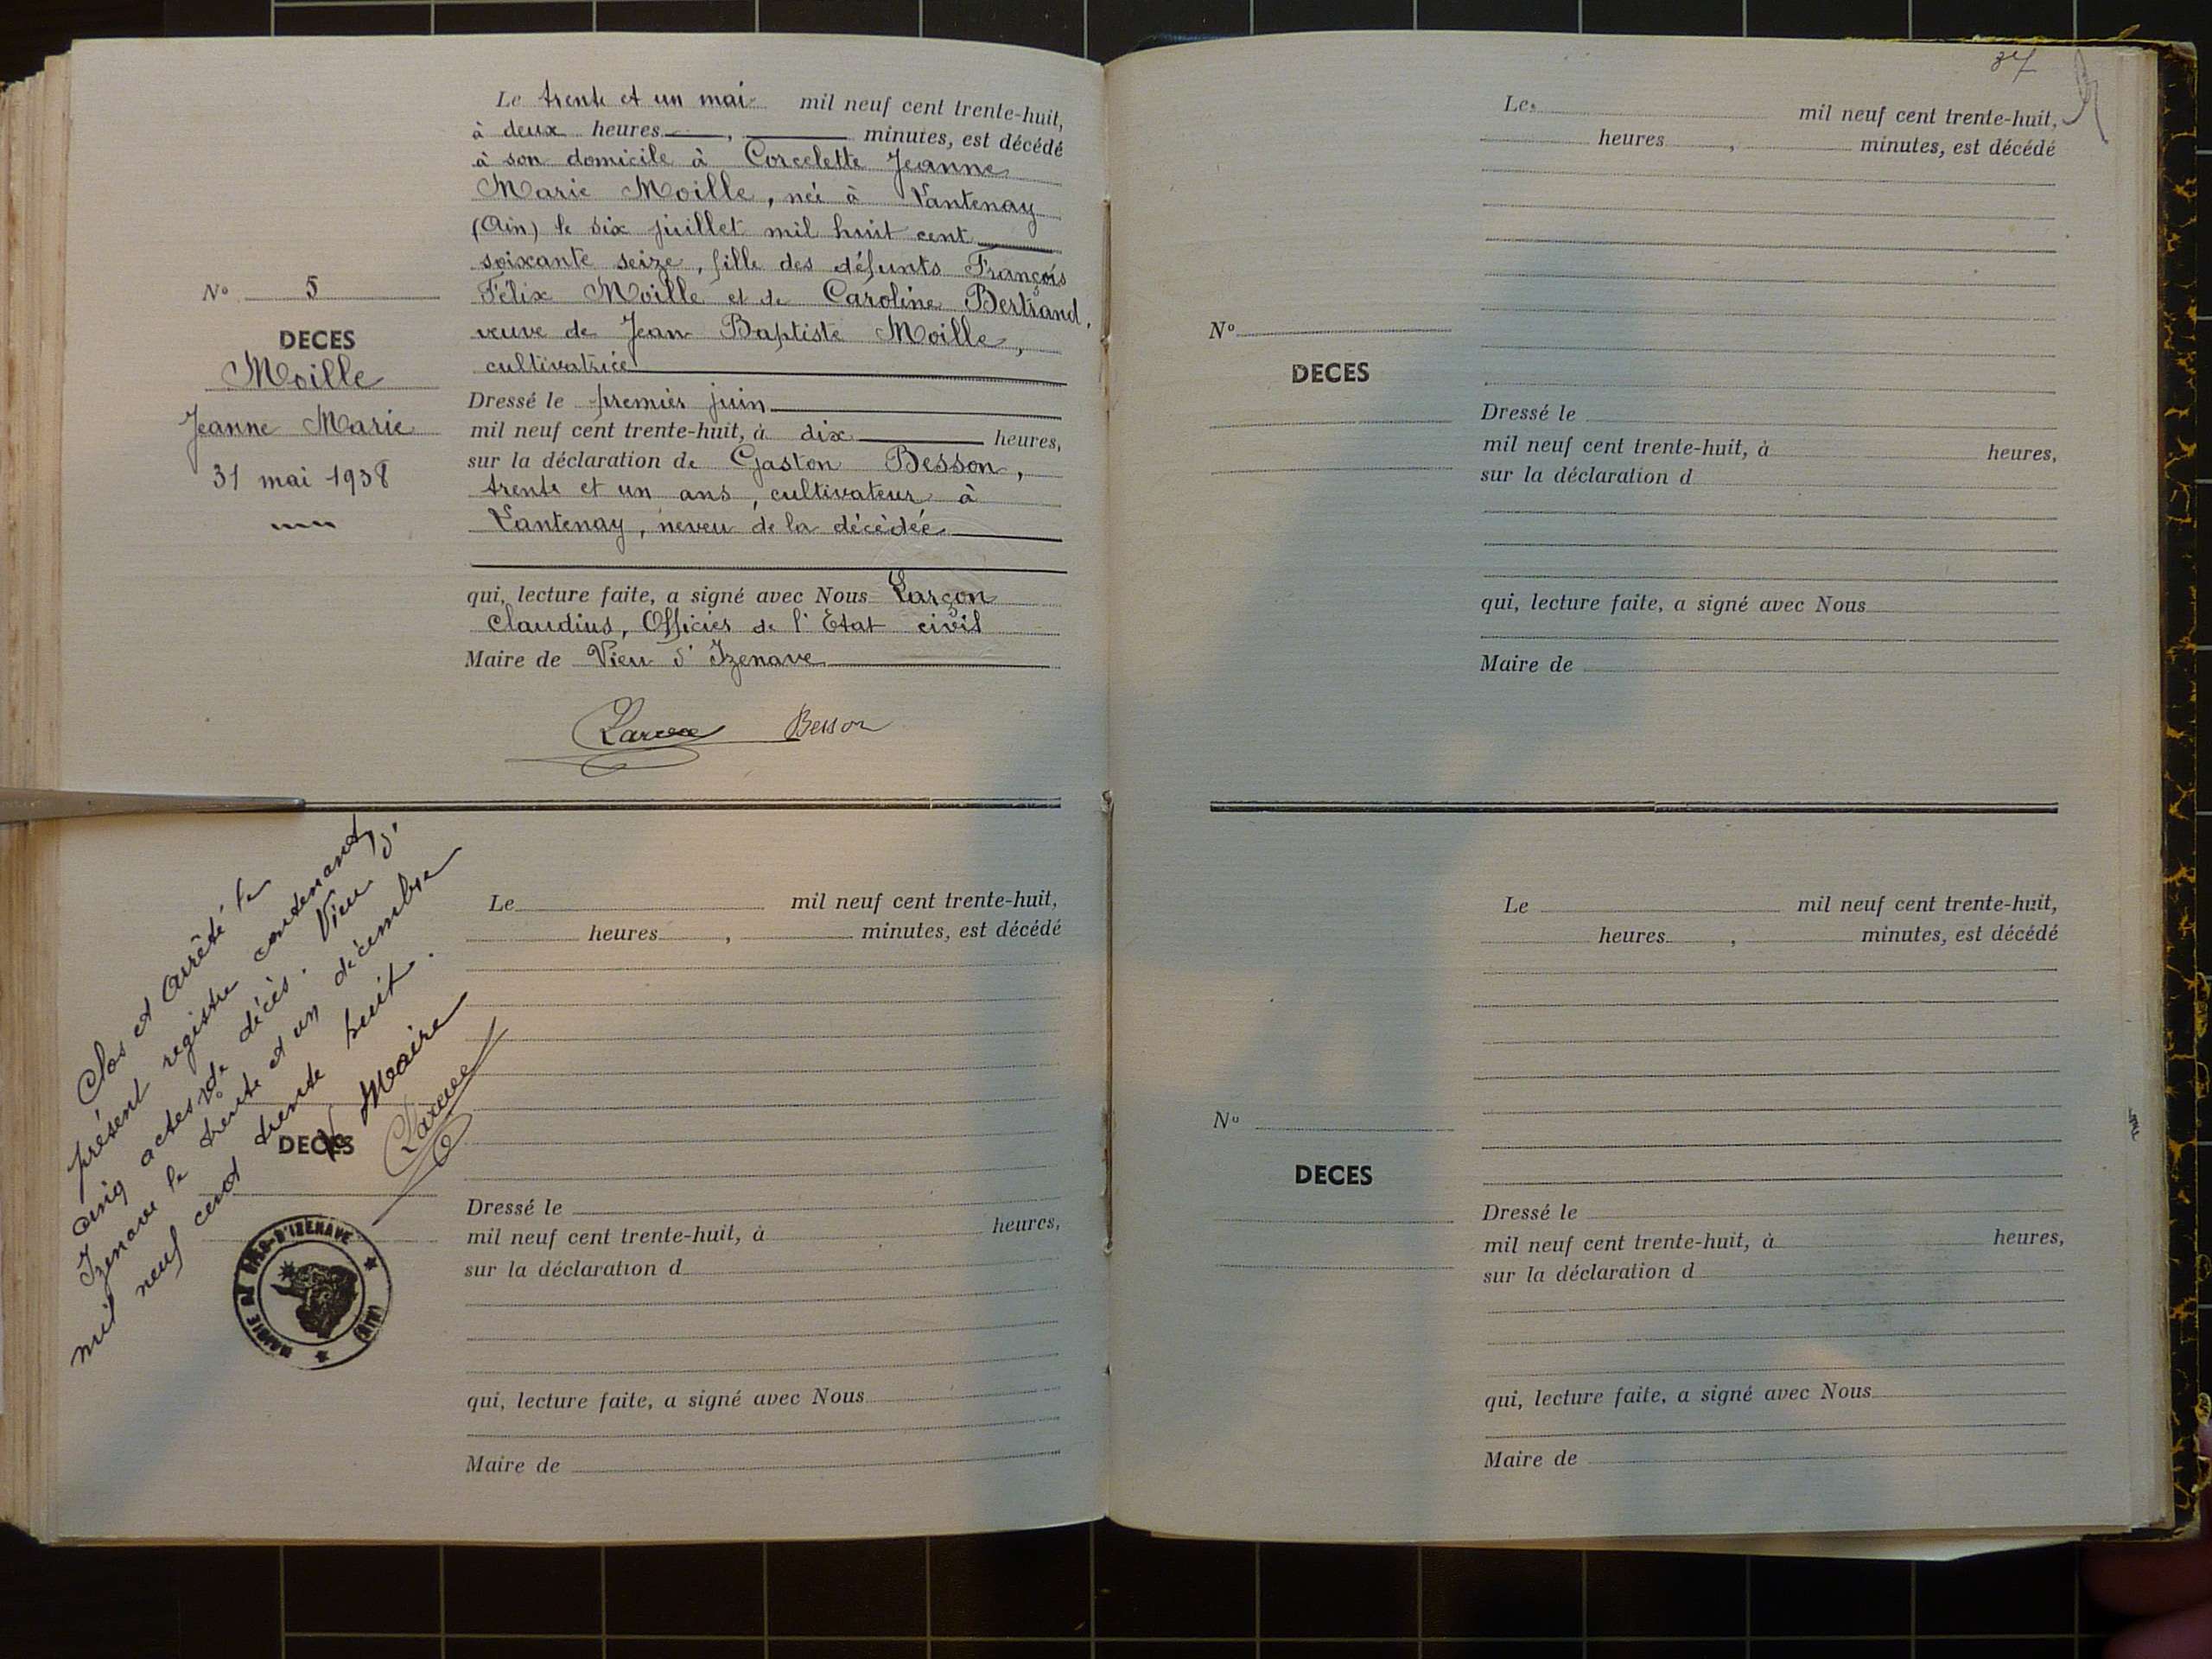 N° 5
DECES
Moille
Jeanne Marie
31 mai 1938
Le trente et un mai mil neuf cent trente-huit,
à deux heures , minutes, est décédé
à son domicile à Corcelette Jeanne
Marie Moille, née à Lantenay
(Ain) le six juillet mil huit cent
soixante seize, fille des défunts François
Félix Moille et de Caroline Bertrand,
veuve de Jean Baptiste Moille,
cultivatrice
Dressé le premier juin
mil neuf cent trente-huit, à dix heures,
sur la déclaration de Gaston Besson,
trente et un ans, cultivateur à
Lantenay, neveu de la décédée
qui, lecture faite, a signé avec Nous Larçon
Claudius, Officier de l'Etat civil
Maire de Vieu d'Izenave
Besson
Clos et arrêté le
présent registre contenant
cinq actes de décès. Vieu d'
Izenave le trente et un décembre
mil neuf cent trente huit.
Le Maire
DECES
MAIRIE DE VIEU-D'IZENAVE (AIN)
Le mil neuf cent trente-huit,
heures , minutes, est décédé
Dressé le
mil neuf cent trente-huit, à heures,
sur la déclaration d
qui, lecture faite, a signé avec Nous
Maire de
37
Le mil neuf cent trente-huit,
heures , minutes, est décédé
N°
DECES
Dressé le
mil neuf cent trente-huit, à heures,
sur la déclaration d
qui, lecture faite, a signé avec Nous
Maire de
Le mil neuf cent trente-huit,
heures , minutes, est décédé
N°
DECES
Dressé le
mil neuf cent trente-huit, à heures,
sur la déclaration d
qui, lecture faite, a signé avec Nous
Maire de